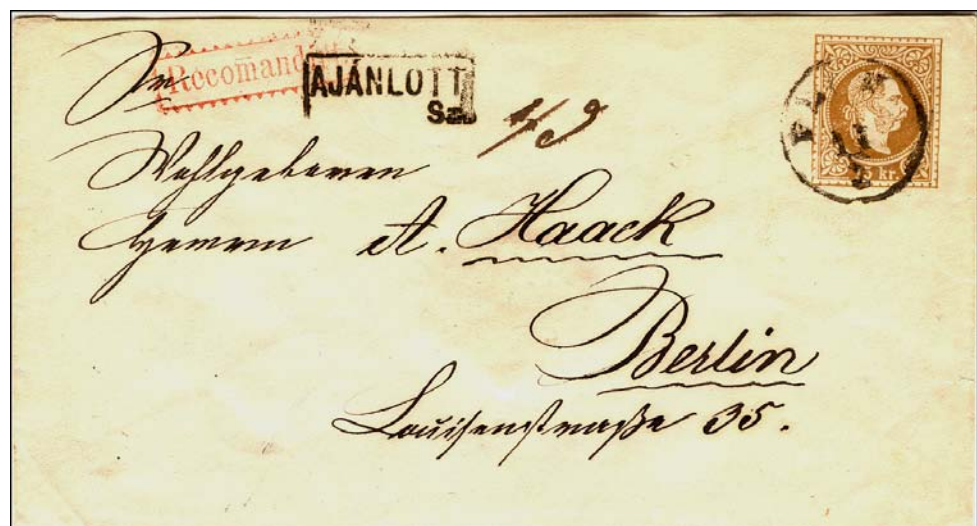 Recomandirt
AJÁNLOTT
Sz.
Sr
Wohlgeboren
Herrn A. Haack
Berlin
Louisenstraße 35.